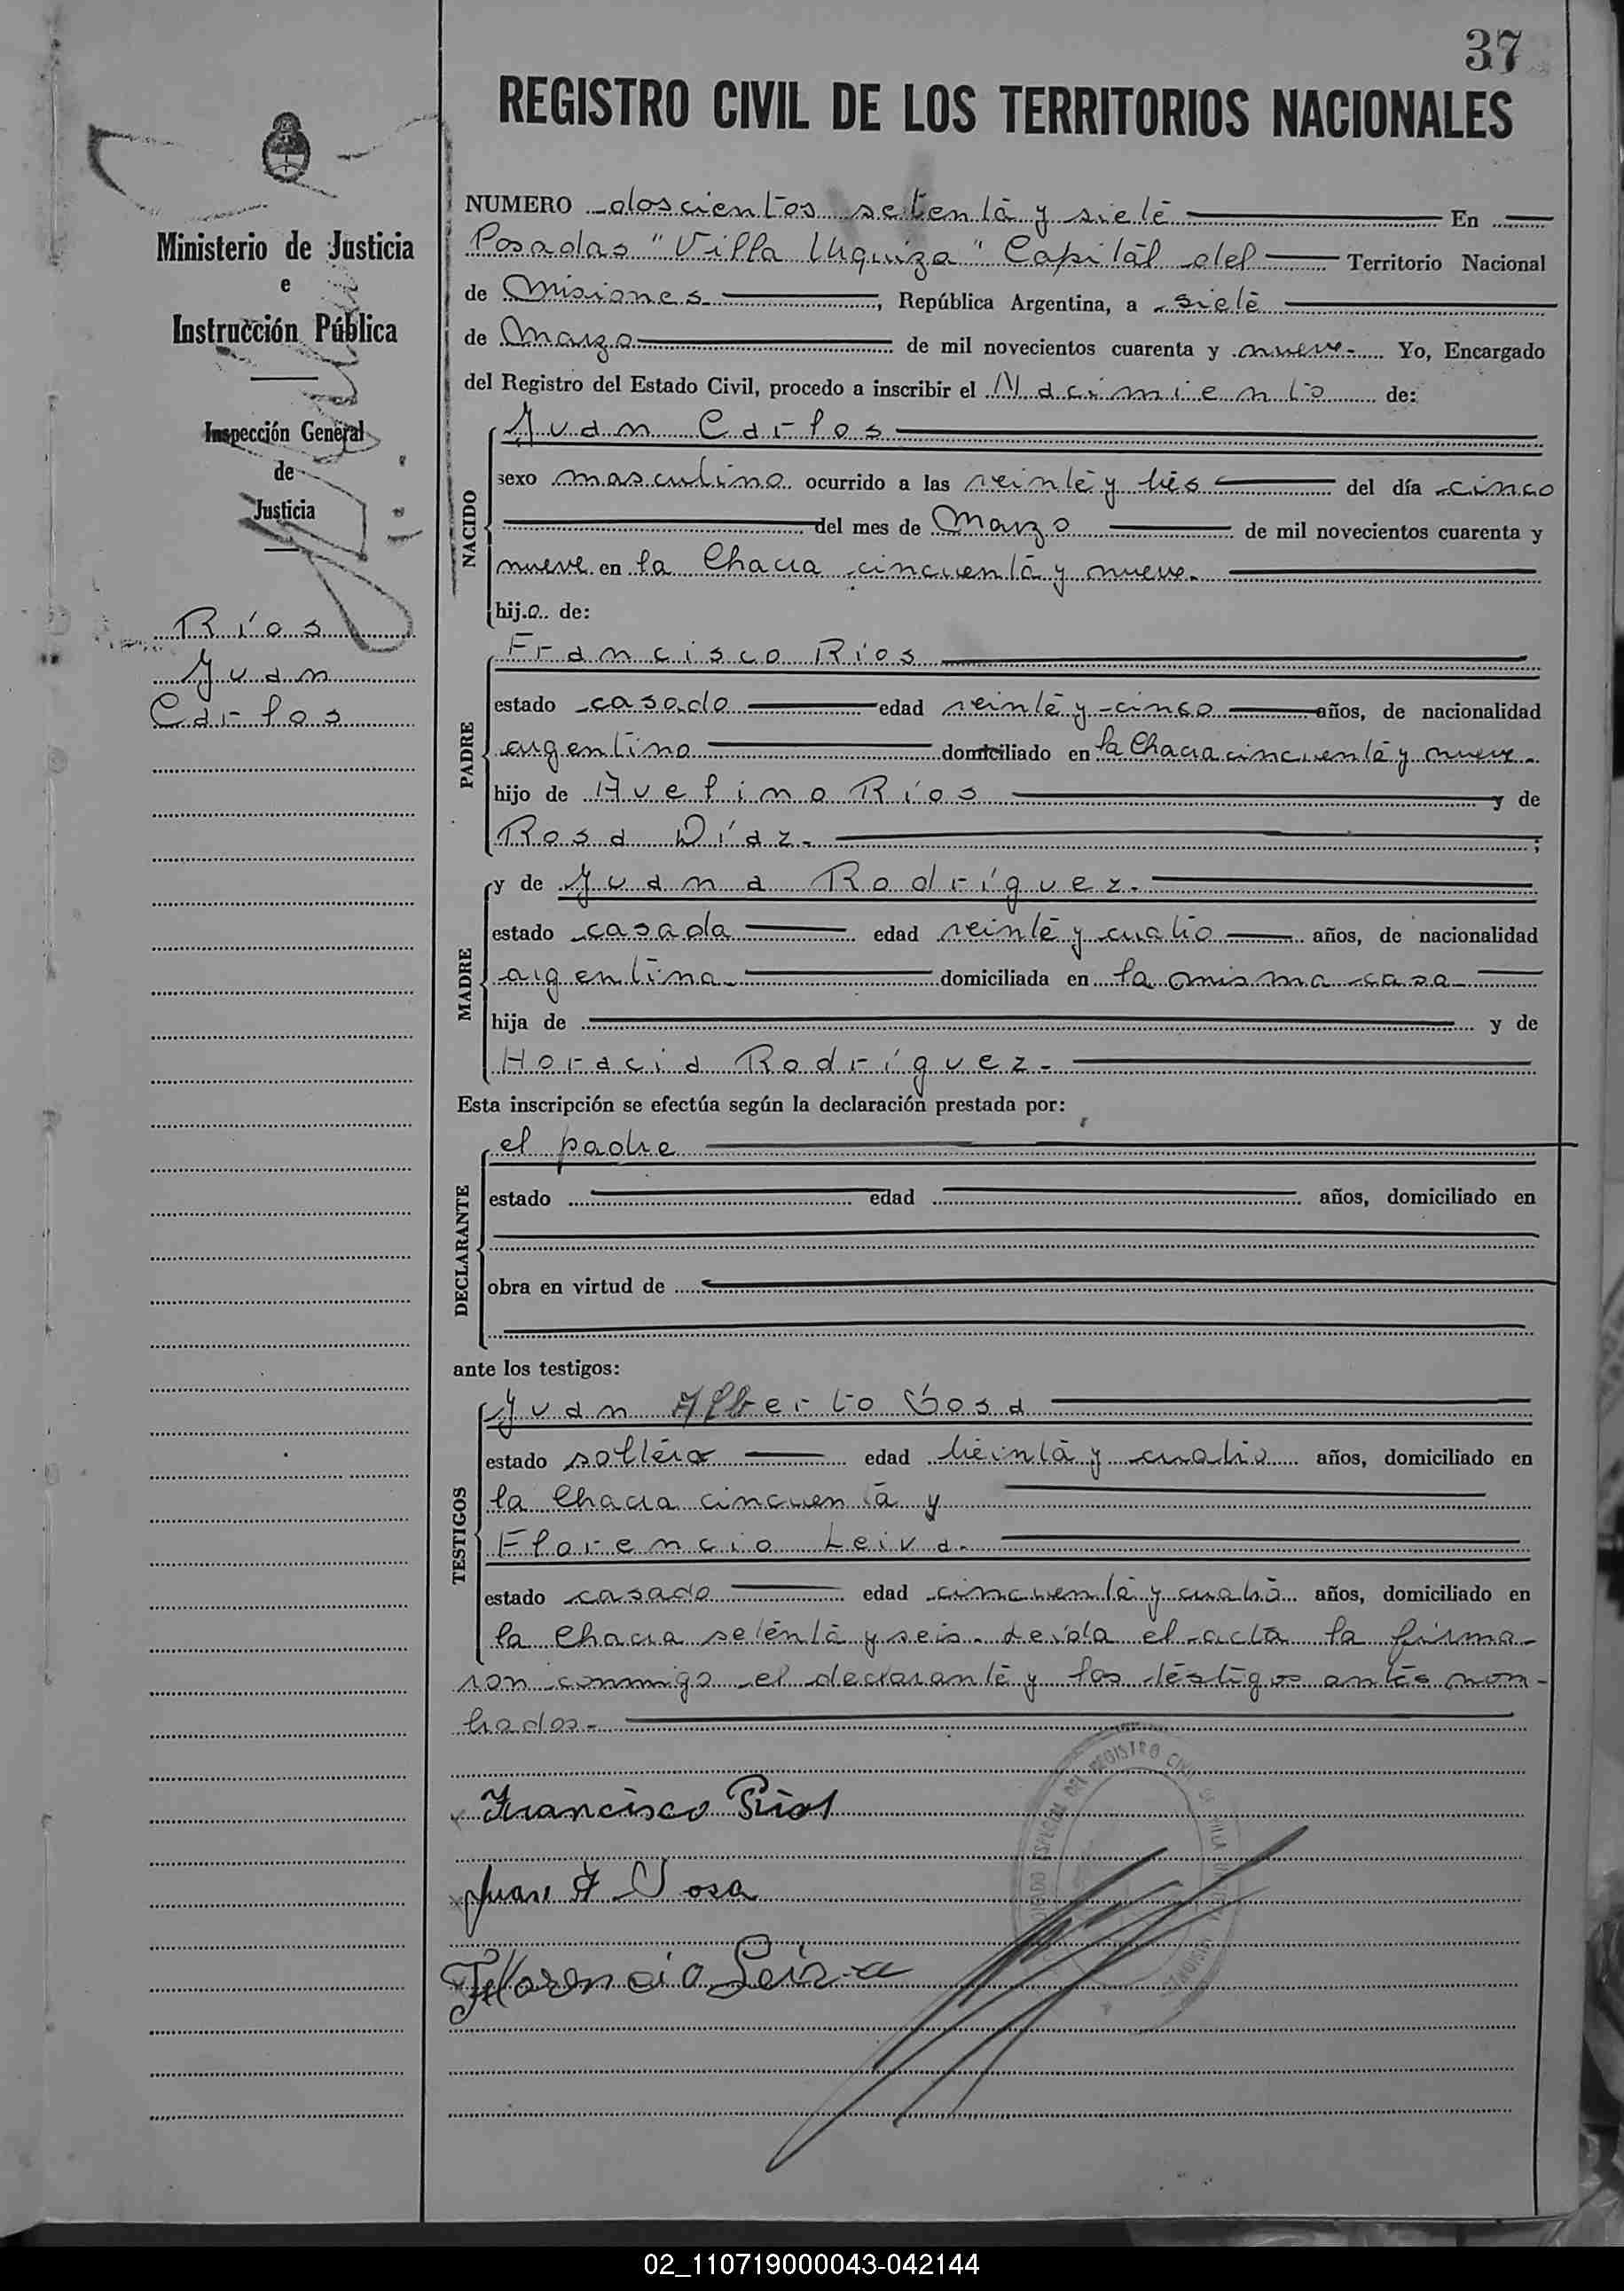 37
REGISTRO CIVIL DE LOS TERRITORIOS NACIONALES
Ministerio de Justicia
e
Instrucción Pública
Inspección General
de
Justicia
Ríos
Juan
Carlos
NUMERO doscientos setenta y siete En
Posadas "Villa Urquiza" Capital del Territorio Nacional
de Misiones, República Argentina, a siete
de Marzo de mil novecientos cuarenta y nueve.- Yo, Encargado
del Registro del Estado Civil, procedo a inscribir el Nacimiento de:
NACIDO
Juan Carlos
sexo masculino ocurrido a las veinte y tres del día cinco
del mes de Marzo de mil novecientos cuarenta y
nueve en la Chacra cincuenta y nueve.
hijo de:
PADRE
Francisco Ríos
estado casado edad veinte y cinco años, de nacionalidad
argentino domiciliado en la Chacra cincuenta y nueve.
hijo de Avelino Ríos y de
Rosa Díaz.- ;
MADRE
y de Juana Rodríguez.
estado casada edad veinte y cuatro años, de nacionalidad
argentina domiciliada en la misma casa
hija de y de
Horacia Rodríguez.-
Esta inscripción se efectúa según la declaración prestada por:
DECLARANTE
el padre
estado edad años, domiciliado en
obra en virtud de
ante los testigos:
TESTIGOS
Juan Alberto Sosa
estado soltero edad treinta y cuatro años, domiciliado en
la Chacra cincuenta y
Florencio Leiva.
estado casado edad cincuenta y cuatro años, domiciliado en
la Chacra setenta y seis. Leída el acta la firma-
ron conmigo el declarante y los testigos antes nom-
brados.-
Francisco Rios
Juan A Sosa
Florencio Leiva
ESPECIAL DEL REGISTRO CIVIL
02_110719000043-042144